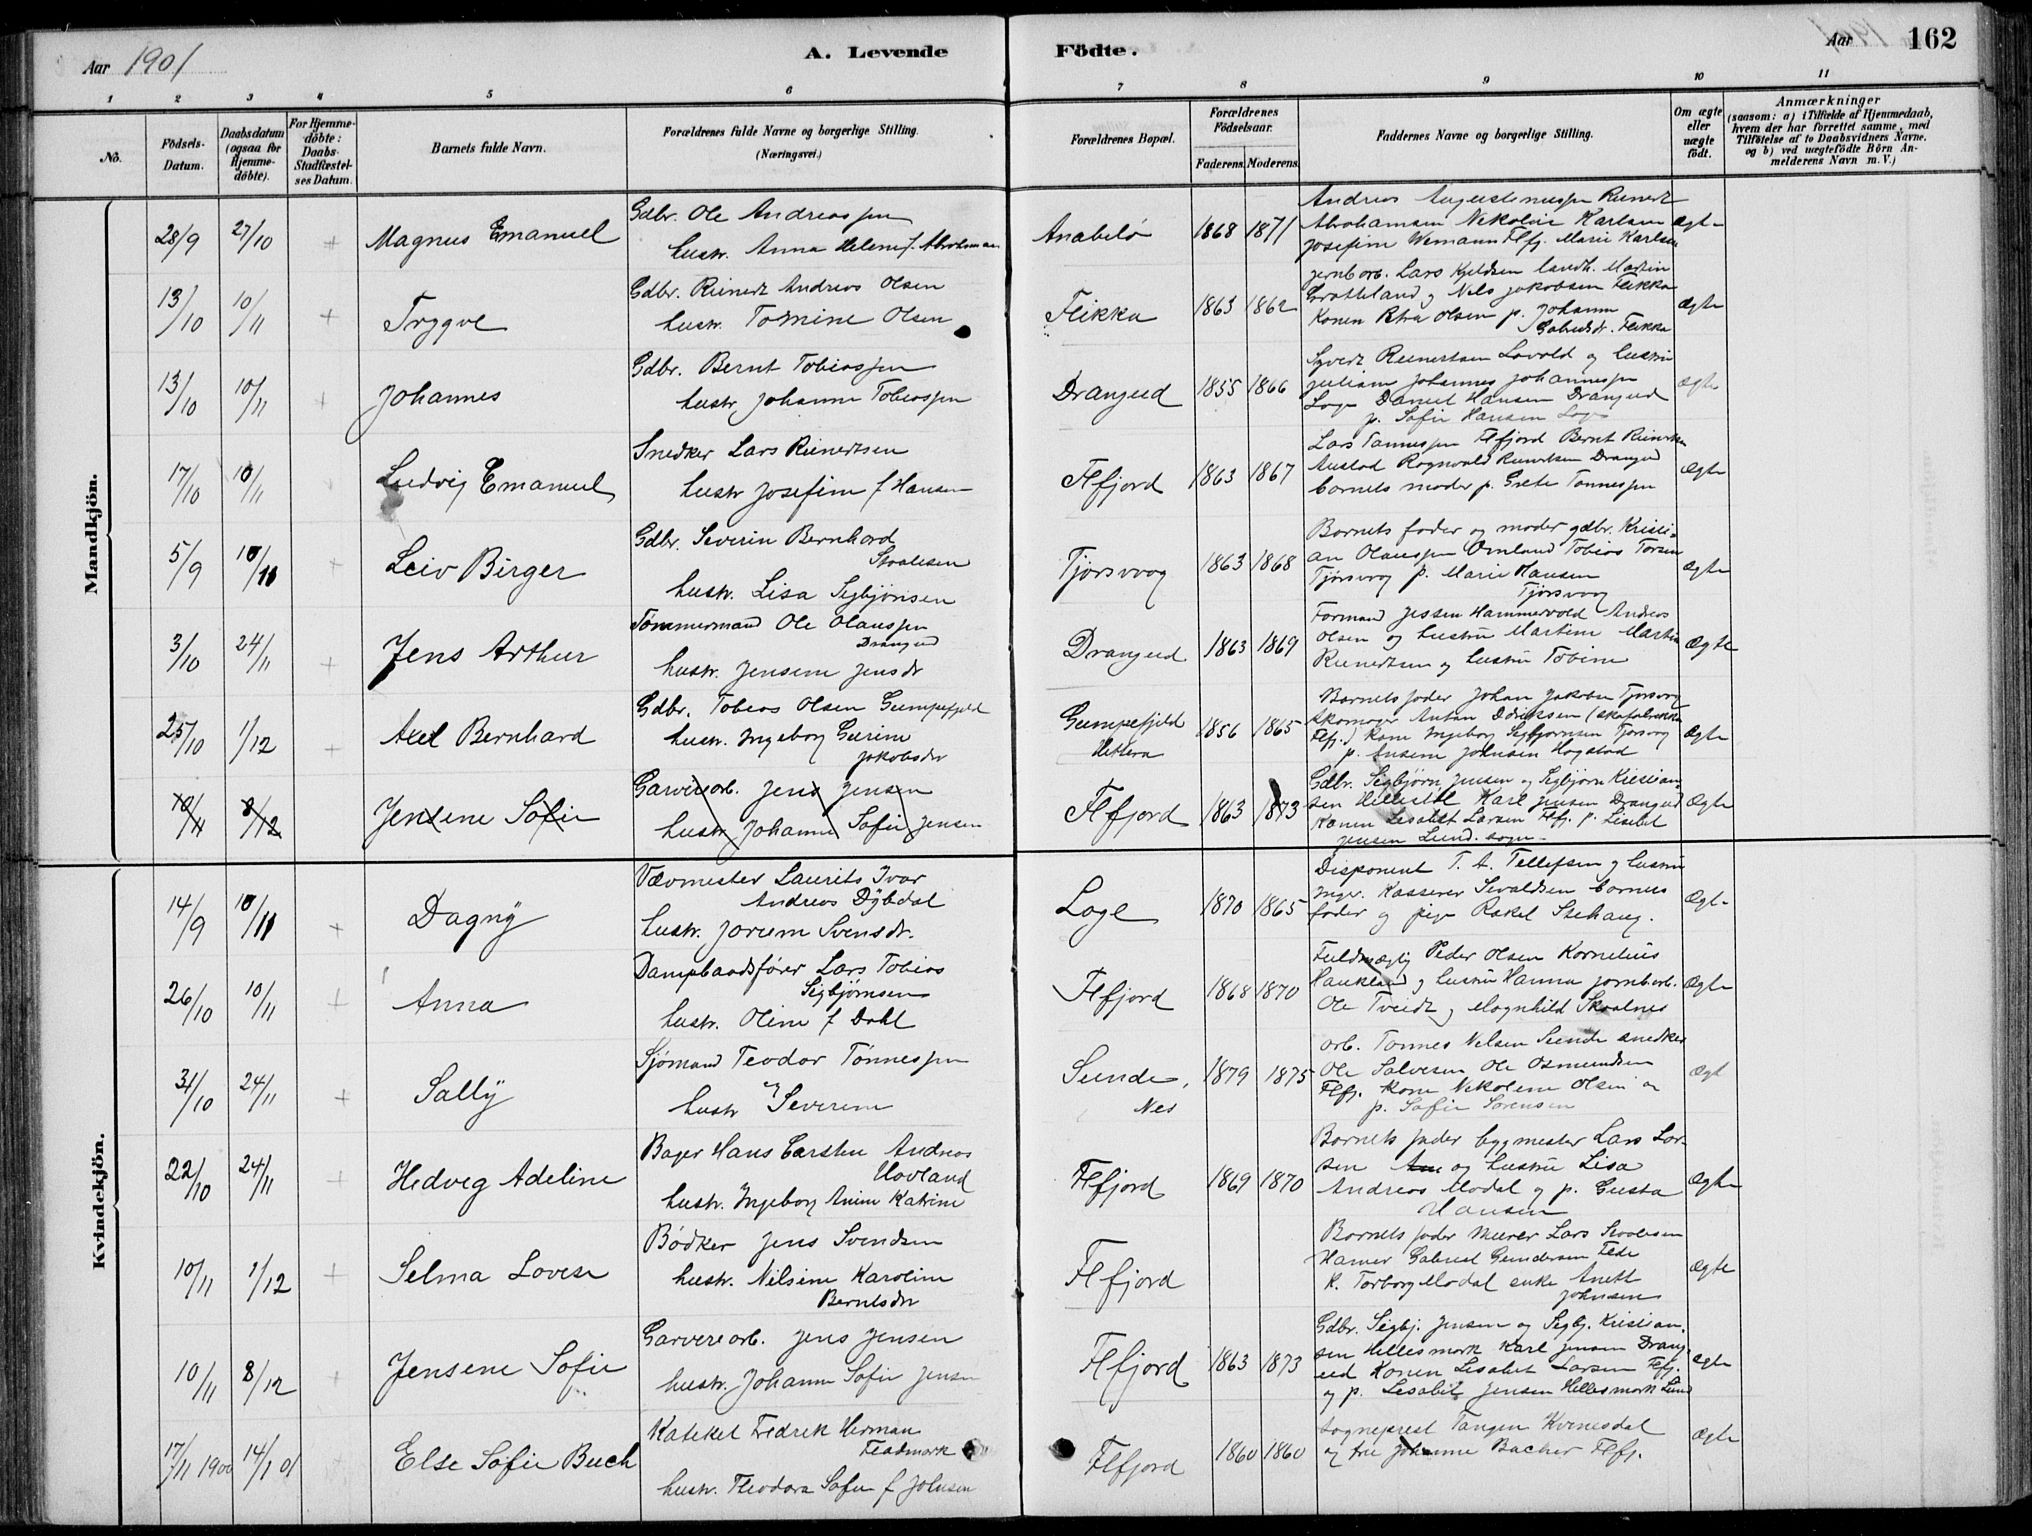 Aar 1901
A. Levende
Födte.
Aar
162
1 2 3 4 5 6 7 8 9 10 11
No.
Födsels-Datum.
Daabsdatum (ogsaa for Hjemme-döbte).
For Hjemme-döbte: Daabs-Stadfæstel-ses Datum.
Barnets fulde Navn.
Forældrenes fulde Navne og borgerlige Stilling.
(Næringsvei.)
Forældrenes Bopæl.
Forældrenes Födselsaar.
Faderens. Moderens.
Faddernes Navne og borgerlige Stilling.
Om ægte eller uægte födt.
Anmærkninger
(saasom: a) i Tilfælde af Hjemmedaab,
hvem der har forrettet samme, med
Tilföielse af to Daabsvidners Navne.
og b) ved uægtefödte Börn An-
melderens Navn m. V.)
Mandkjön.
28/9 27/10 + Magnus Emanuel
Gdbr. Ole Andreassen
hustr. Anna Helene f. Abrahamsen
Anabelö 1868 1871
Andreas Augustinussen Reinert
Abrahamsen Nikolai Karlsen
Josefine Wemann Flfj. Marie Karlsen
Ægte
13/10 10/11 + Trygve
Gdbr. Reinert Andreas Olsen
hustr. Tomine Olsen
Flikka 1863 1862
jernb.arb. Lars Kjeldsen landh. Martin
Grøtteland og Nils Jakobsen Flikka
Konen Petra Olsen p. Johanne
Gabrielsdr. Flikka
Ægte
13/10 10/11 + Johannes
Gdbr. Bernt Tobiassen
hustr Johanne Tobiassen
Drangeid 1855 1866
Syvert Reinertsen Lovold og hustru
Juliane Johannes Johannessen
Loge Daniel Hansen Drangeid
p. Sofie Hansen Loge
Ægte
17/10 10/11 Ludvig Emanuel
Snedker Lars Reinertsen
hustr Josefine f Hansen
Flfjord 1863 1867
Lars Tønnessen Flfjord Bernt Reinertsen
Austad Rognvald Reinertsen Drangeid
barnets moder p. Grete Tønnessen
Ægte
5/9 10/11 + Leiv Birger
Gdbr. Severin Bernhard
Staalesen
hustr. Lisa Sigbjørnsen
Tjørsvaag 1863 1868
Barnets fader og moder gdbr. Kristi-
an Olaussen Omland Tobias Torsen
Tjørsvog p. Marie Hansen
Tjørsvoog
Ægte
3/10 24/11 + Jens Arthur
Tømmermand Ole Olaussen
Drangeid
hustr. Jensine Jensdr
Drangeid 1863 1869
Formand Jessen Hammervold Andreas
Olsen og hustru Martine Martin
Reinertsen og hustru Tobine
Ægte
25/10 1/12 Axel Bernhard
Gdbr. Tobias Olsen Gumpefjeld
hustr. Ingeborg Gurine
Jakobsdr
Gumpefjeld
Hitterø
1856 1865
Barnets fader Johan Jakobsen Tjørsvog
skomager Anton Didriksen (skofabrikken
Flfj.) kone Ingeborg Sigbjørnsen Tjørsvog
p. Ansine Johnsen Hogstad
Ægte
10/11 8/12 Jensene Sofie
Garveriarb. Jens Jensen
hustr Johanne Sofie Jensen
Flfjord 1863 1873
Gdbr. Sigbjørn Jensen og Sigbjørn Kristian-
sen Karl Jensen Drangeid
Konen Lisabet Larsen Flfj. p. Lisabet
Jensen Lund. sogn
Ægte
Kvindekjön.
14/9 10/11 + Dagny
Vævmester Laurits Ivar
Andreas Dybdal
hustr. Jorine Svensdr.
Loge 1870 1865
Disponent T. A. Tellefsen og hustru
Inger. Kasserer Sivaldsen barnets
fader og pige Rakel Stehaug.
Ægte
26/10 10/11 + Anna
Dampbaadsfører Lars Tobias
Sigbjørnsen
hustr. Oline f Dahl
Flfjord 1868 1870
Fuldmægtig Peder Olsen Kornelius
Haukland og hustru Hanna jernb.arb.
Ole Tveidt og Magnhild Skaalnes
Ægte
31/10 24/11 + Sally
Sjømand Teodor Tønnessen
hustr Severine
Sunde,
Nes
1879 1875
arb. Tønnes Nilsen Sunde snedker
Ole Salvesen Ole Osmundsen
Flfj. kone Nikolene Olsen og
p. Sofie Sørensen
Ægt
22/10 24/11 + Hedvig Adeline
Bager Hans Carsten Andreas
Hovland
hustr. Ingeborg Anine Katrine
Flfjord 1869 1870
Barnets fader bygmester Lars Lar-
sen og hustru Lisa
Andreas Modal og p. Gusta
Hansen
Ægte
10/11 1/12 + Selma Lovise
Bødker Jens Svendsen
hustr. Nilsine Karoline
Berntsdr
Flfjord
Barnets fader murer Lars Staalesen
Hamer Gabriel Gundersen Fede
k. Torborg Modal enke Anett
Johnsen
Ægte
10/11 8/12 + Jensene Sofie
Garveriarb. Jens Jensen
hustr. Johanne Sofie Jensen
Flfjord 1863 1873
Gdbr. Sigbj. Jensen og Sigbj. Kristian-
sen Hellesmork Karl Jensen Drang-
eid Konen Lisabet Larsen Flfj.
og p. Lisabet Jensen Hellesmork Lund
Ægte
17/11 1900 14/1 01 Else Sofie Buch
Kateket Fredrik Herman
Fladmark
hustr. Theodora Sofie f Johnsen
Flfjord 1860 1860
Sogneprest Tangen Kvinesdal
og frue Johanne Bacher Flfj.
Ægte